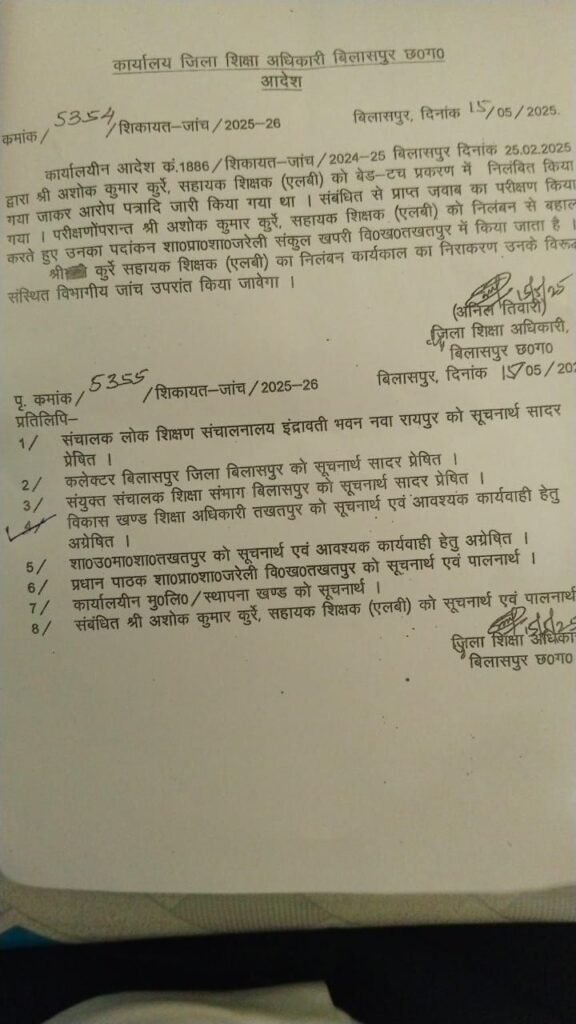 कार्यालय जिला शिक्षा अधिकारी बिलासपुर छ0ग0
आदेश
कमांक / 5354 /शिकायत–जांच / 2025-26 बिलासपुर, दिनांक 15/05/2025.
कार्यालयीन आदेश कं.1886 / शिकायत–जांच / 2024-25 बिलासपुर दिनांक 25.02.2025
द्वारा श्री अशोक कुमार कुर्रे, सहायक शिक्षक (एलबी) को बेड–टच प्रकरण में निलंबित किया
गया जाकर आरोप पत्रादि जारी किया गया था । संबंधित से प्राप्त जवाब का परीक्षण किया
गया । परीक्षणोंपरान्त श्री अशोक कुमार कुर्रे, सहायक शिक्षक (एलबी) को निलंबन से बहाल
करते हुए उनका पदांकन शा0प्रा0शा0जरेली संकुल खपरी वि0ख0तखतपुर में किया जाता है ।
श्री कुर्रे सहायक शिक्षक (एलबी) का निलंबन कार्यकाल का निराकरण उनके विरूद्ध
संस्थित विभागीय जांच उपरांत किया जावेगा ।
15/5/25
(अनिल तिवारी)
जिला शिक्षा अधिकारी,
बिलासपुर छ0ग0
पृ. कमांक / 5355 /शिकायत–जांच / 2025-26 बिलासपुर, दिनांक 15/05/202
प्रतिलिपि–
1/ संचालक लोक शिक्षण संचालनालय इंद्रावती भवन नवा रायपुर को सूचनार्थ सादर
प्रेषित ।
2/ कलेक्टर बिलासपुर जिला बिलासपुर को सूचनार्थ सादर प्रेषित ।
3/ संयुक्त संचालक शिक्षा संभाग बिलासपुर को सूचनार्थ सादर प्रेषित ।
4/ विकास खण्ड शिक्षा अधिकारी तखतपुर को सूचनार्थ एवं आवश्यक कार्यवाही हेतु
अग्रेषित ।
5/ शा0उ0मा0शा0तखतपुर को सूचनार्थ एवं आवश्यक कार्यवाही हेतु अग्रेषित ।
6/ प्रधान पाठक शा0प्रा0शा0जरेली वि0ख0तखतपुर को सूचनार्थ एवं पालनार्थ ।
7/ कार्यालयीन मु0लि0 / स्थापना खण्ड को सूचनार्थ ।
8/ संबंधित श्री अशोक कुमार कुर्रे, सहायक शिक्षक (एलबी) को सूचनार्थ एवं पालनार्थ
15/5/25
जिला शिक्षा अधिका
बिलासपुर छ0ग0